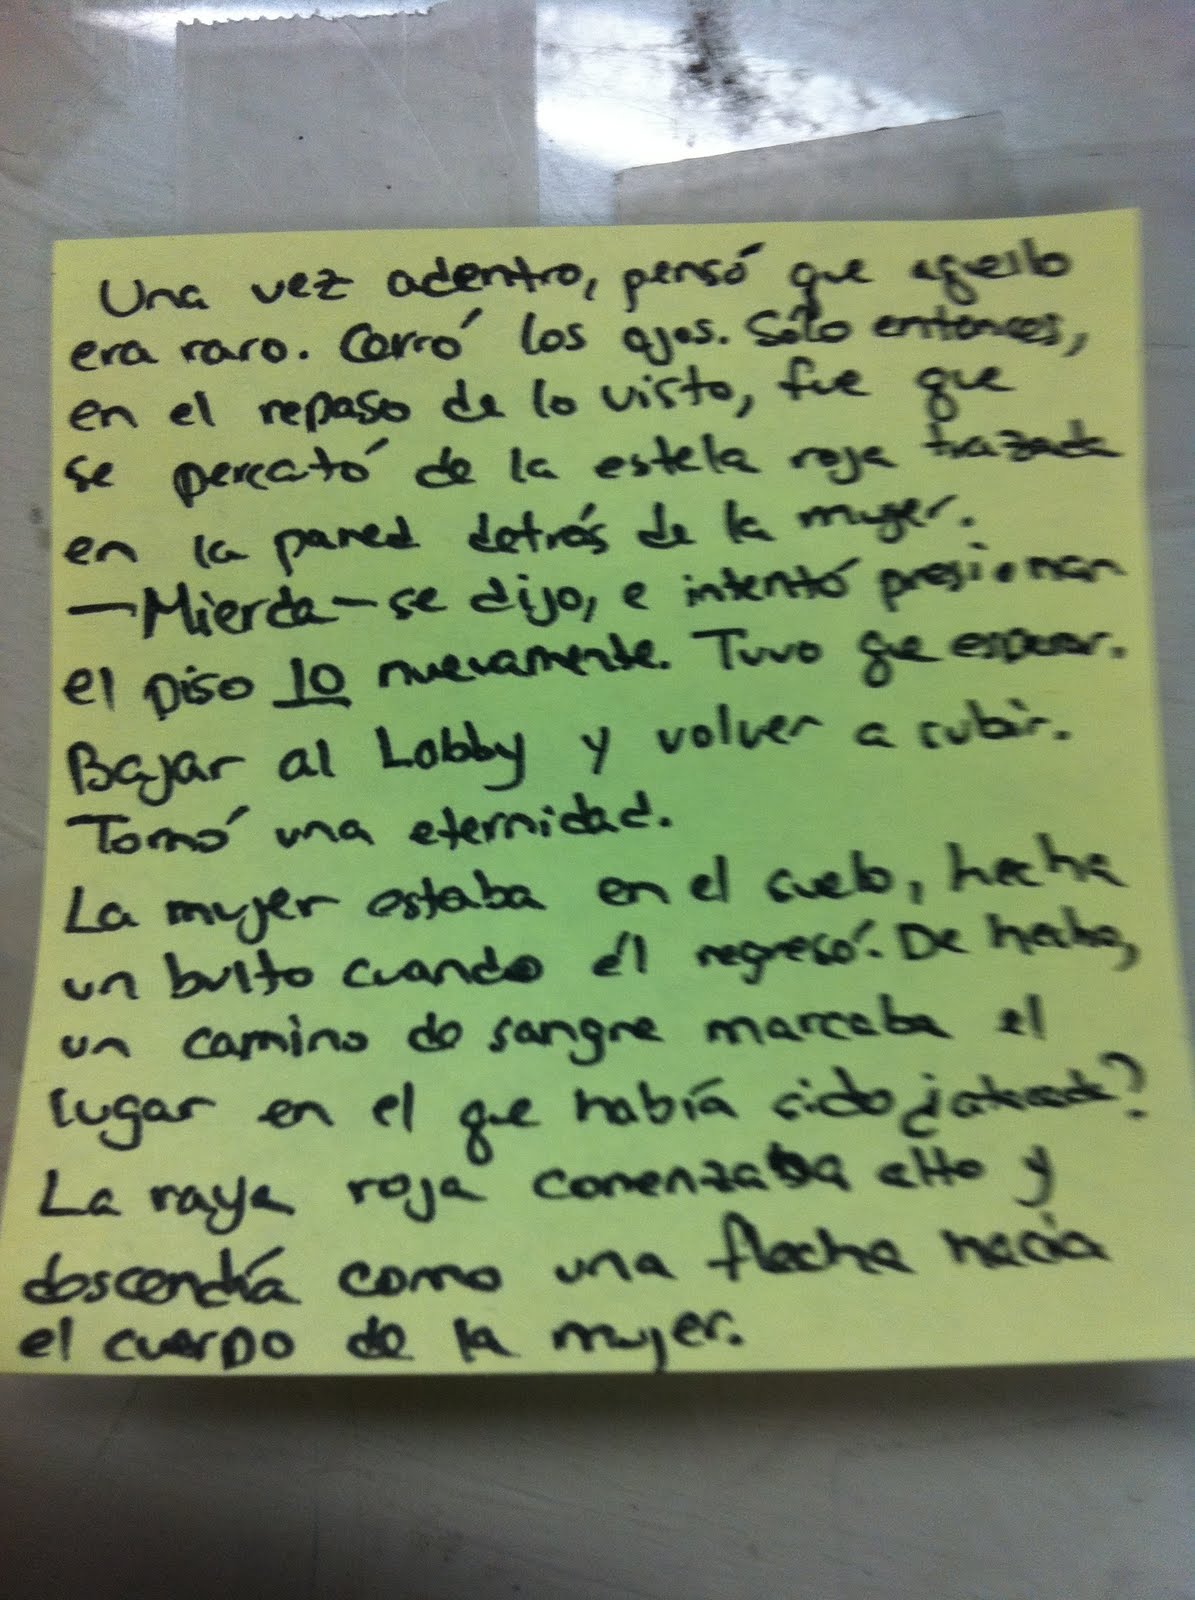 Una vez adentro, pensó que aquello
era raro. Cerró los ojos. Sólo entonces,
en el repaso de lo visto, fue que
se percató de la estela roja trazada
en la pared detrás de la mujer.
—Mierda—se dijo, e intentó presionar
el piso 10 nuevamente. Tuvo que esperar.
Bajar al Lobby y volver a subir.
Tomó una eternidad.
La mujer estaba en el suelo, hecha
un bulto cuando él regresó. De hecho,
un camino de sangre marcaba el
lugar en el que había sido ¿atacada?
La raya roja comenzaba alto y
descendía como una flecha hacia
el cuerpo de la mujer.